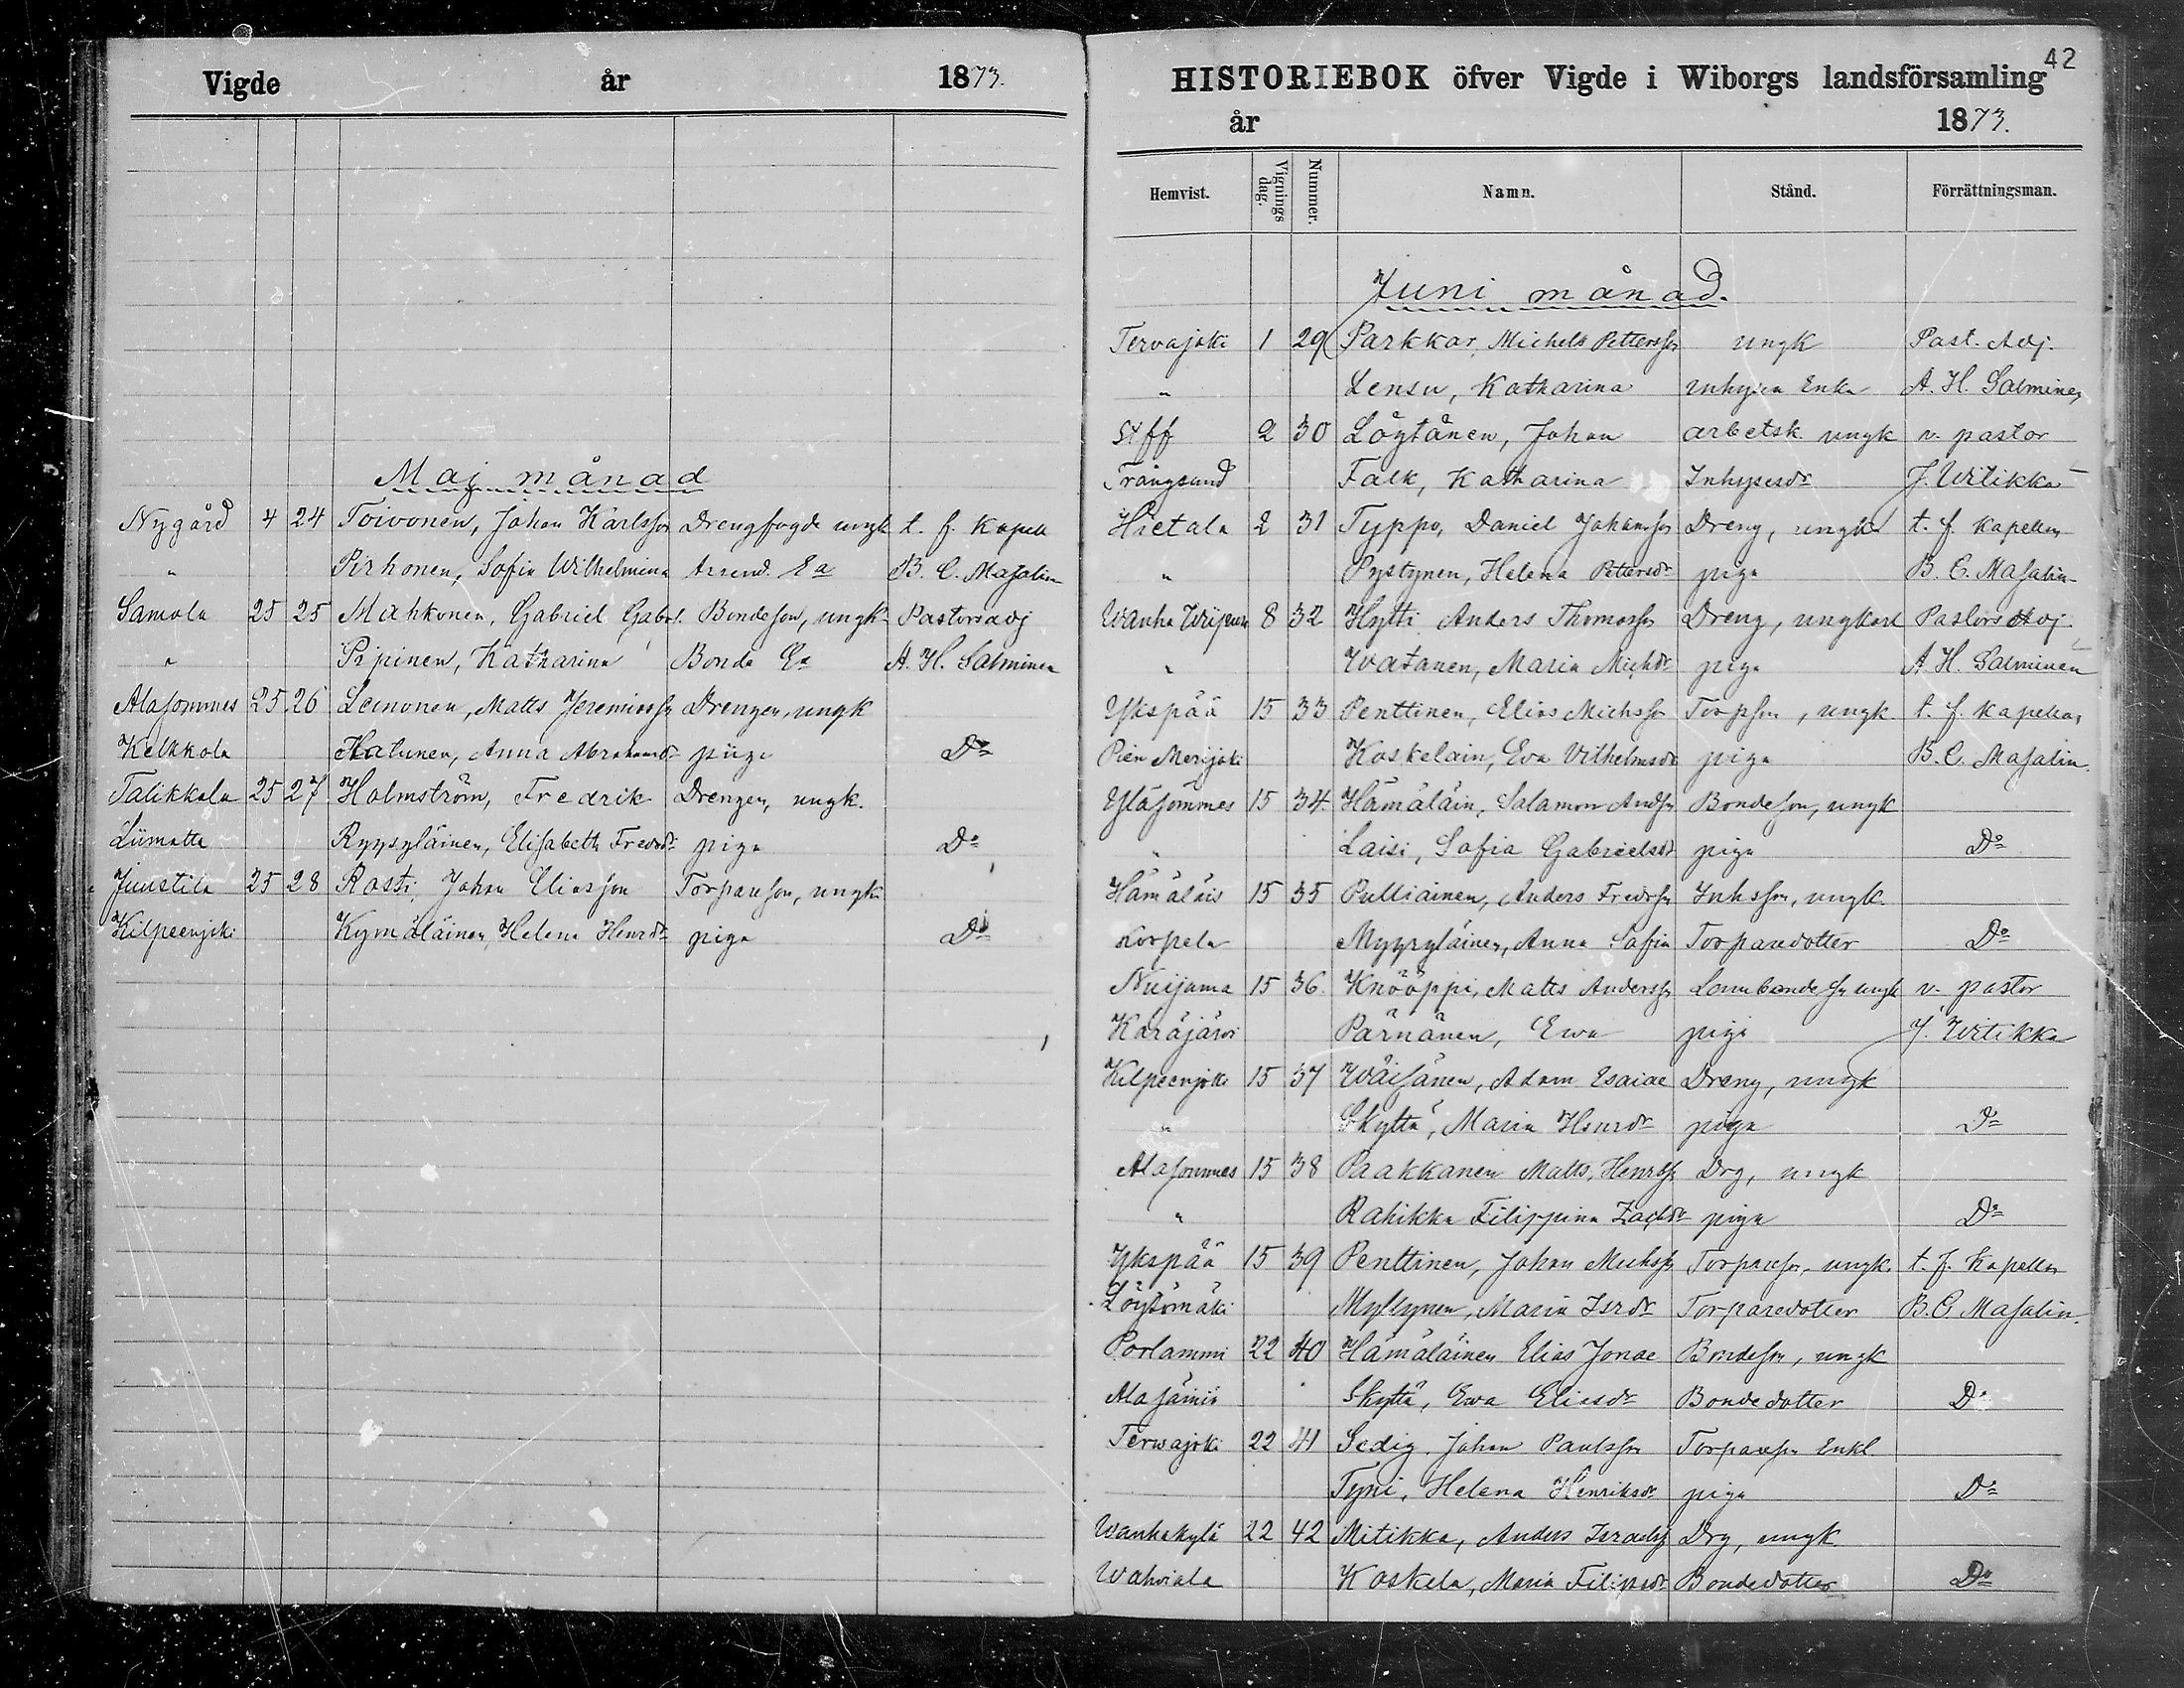 Vigde år 1873.
Maj månad
Nygård 4 24 Toivonen, Johan Karlsson Drengfogde ungk t. f. Kapell
" Pirhonen, Sofia Wilhelmina Arrend. Ea B. C. Masalin
Samola 25 25 Mahkonen, Gabriel Gabr. Bondeson, ungk Pastorsadj
" Pipinen, Katharina Bonde Ea A. H. Salminen
Alasommes 25 26 Leinonen, Matts Jeremiasson Drengen, ungk
Kelkkola Hatunen, Anna Abrahamsdr piga Do
Talikkala 25 27 Holmström, Fredrik Drengen, ungk.
Liimatta Ryypyläinen, Elisabeth Fredrdr piga Do
Juustila 25 28 Rasti, Johan Eliasson Torpareson, ungk
Kilpeenjoki Kymäläinen, Helena Henrdr piga Do
42
HISTORIEBOK öfver Vigde i Wiborgs landsförsamling
år 1873.
Hemvist. Vignings dag. Nummer. Namn. Stånd. Förrättningsman.
Juni månad.
Tervajoki 1 29 Parkkar, Michels Pettersson ungk Past. Adj.
" Lensu, Katharina Enka A. H. Salminen
2 30 Löytänen, Johan arbetsk. ungk v. pastor
Trångsund Falk, Katharina Inhysesdr J. Witikka
Hietala 2 31 Typpo, Daniel Johansson Dreng, ungk t. f. kapellan
" Pystynen, Helena Pettersdr piga B. C. Masalin
Wanha Wiipuri 8 32 Hytti Anders Thomasson Dreng, ungkarl Pastors Adj.
" Watanen, Maria Michdr piga A H. Salminen
Ykspää 15 33 Penttinen, Elias Michsson Torpson, ungk. t. f. kapellan
Pien Merijoki Koskelain, Eva Vilhelmsdr piga B. C. Masalin.
Yläsommes 15 34. Hämäläin, Salamon Andsson Bondeson, ungk
" Laisi, Sofia Gabrielsdr piga Do
Hämäläis 15 35 Pulliainen, Anders Fredrsson Inhsson, ungk.
Korpela Myyryläinen, Anna Sofia Torparedotter Do
Nuijama 15 36. Knööppi, Matts Andersson ungk v. pastor
Käräjärvi Pärnänen, Ewa piga J. Witikka
Kilpeenjoki 15 37 Wäisänen, Adam Esaiae Dreng, ungk
" Skyttä, Maria Henrdr piga Do
Alasommes 15 38 Paakkanen Matts, Henrsson Drg, ungk
" Rahikka Filippina Zachdr piga Do
Ykspää 15 39 Penttinen, Johan Michsson Torpareson, ungk. t. f. Kapellan
Löytömäki Myllynen, Maria Isrdr Torparedotter B. C. Masalin.
Porlammi 22 40 Hämäläinen Elias Jonae Bondeson, ungk
Skyttä, Ewa Eliasdr Bondedotter Do
Terwajoki 22 41 Sedig. Johan Paulsson Torpareson Enkl.
Tyni, Helena Henriksdr piga Do
Wanhakylä 22 42 Mitikka, Anders Israelss Drg, ungk
Wahviala Koskela, Maria Filipsdr Bondedotter Do